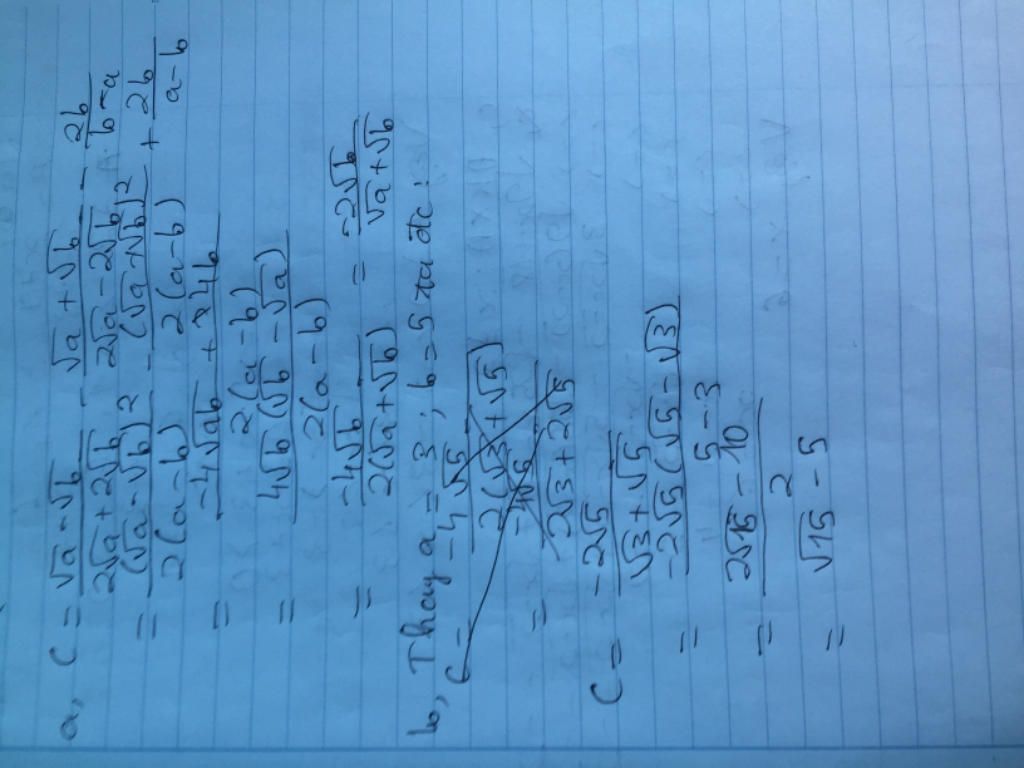 a, C = \frac{√a - √b}{2√a + 2√b} - \frac{√a + √b}{2√a - 2√b} - \frac{2b}{b - a}
= \frac{(√a - √b)^2}{2(a - b)} - \frac{(√a + √b)^2}{2(a - b)} + \frac{2b}{a - b}
= \frac{-4√ab + 4b}{2(a - b)}
= \frac{4√b(√b - √a)}{2(a - b)}
= \frac{-4√b}{2(√a + √b)} = \frac{-2√b}{√a + √b}
b, Thay a = 3; b = 5 ta đc:
C = \frac{-4√5}{2(√3 + √5)}
= \frac{-4√5}{2√3 + 2√5}
C = \frac{-2√5}{√3 + √5}
= \frac{-2√5(√5 - √3)}{5 - 3}
= \frac{2√15 - 10}{2}
= √15 - 5